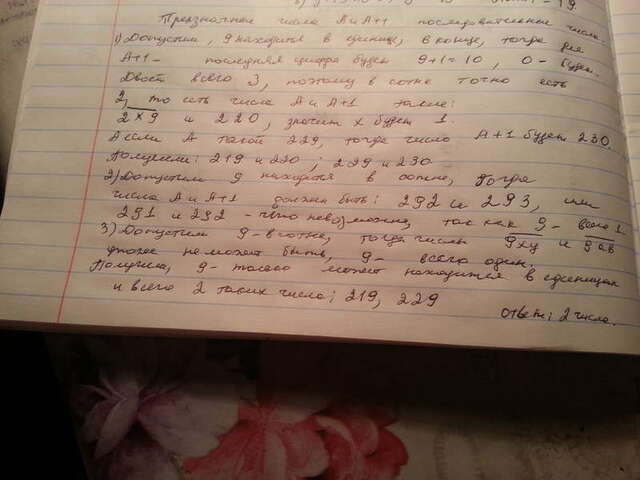 Трехзначные числа А и А+1 последовательные числа.
1) Допустим, 9 находится в единице, в конце, тогда для
А+1 - последняя цифра будет 9+1=10, 0 - будет.
Двоек всего 3, поэтому в сотне точно есть
2, то есть числа А и А+1 такие:
2×9 и 220, значит х будет 1.
А если А такой 229, тогда число А+1 будет 230.
Получили: 219 и 220; 229 и 230
2) Допустим 9 находится в сотне, тогда
числа А и А+1 должны быть: 292 и 293, или
291 и 292 - что невозможно, так как 9 - всего 1
3) Допустим 9 - в сотне, тогда числы 9ху и 9ав
тоже не может быть, 9 - всего один.
Получили, 9 - только может находится в единицах
и всего 2 таких числа; 219, 229
Ответ: 2 числа.